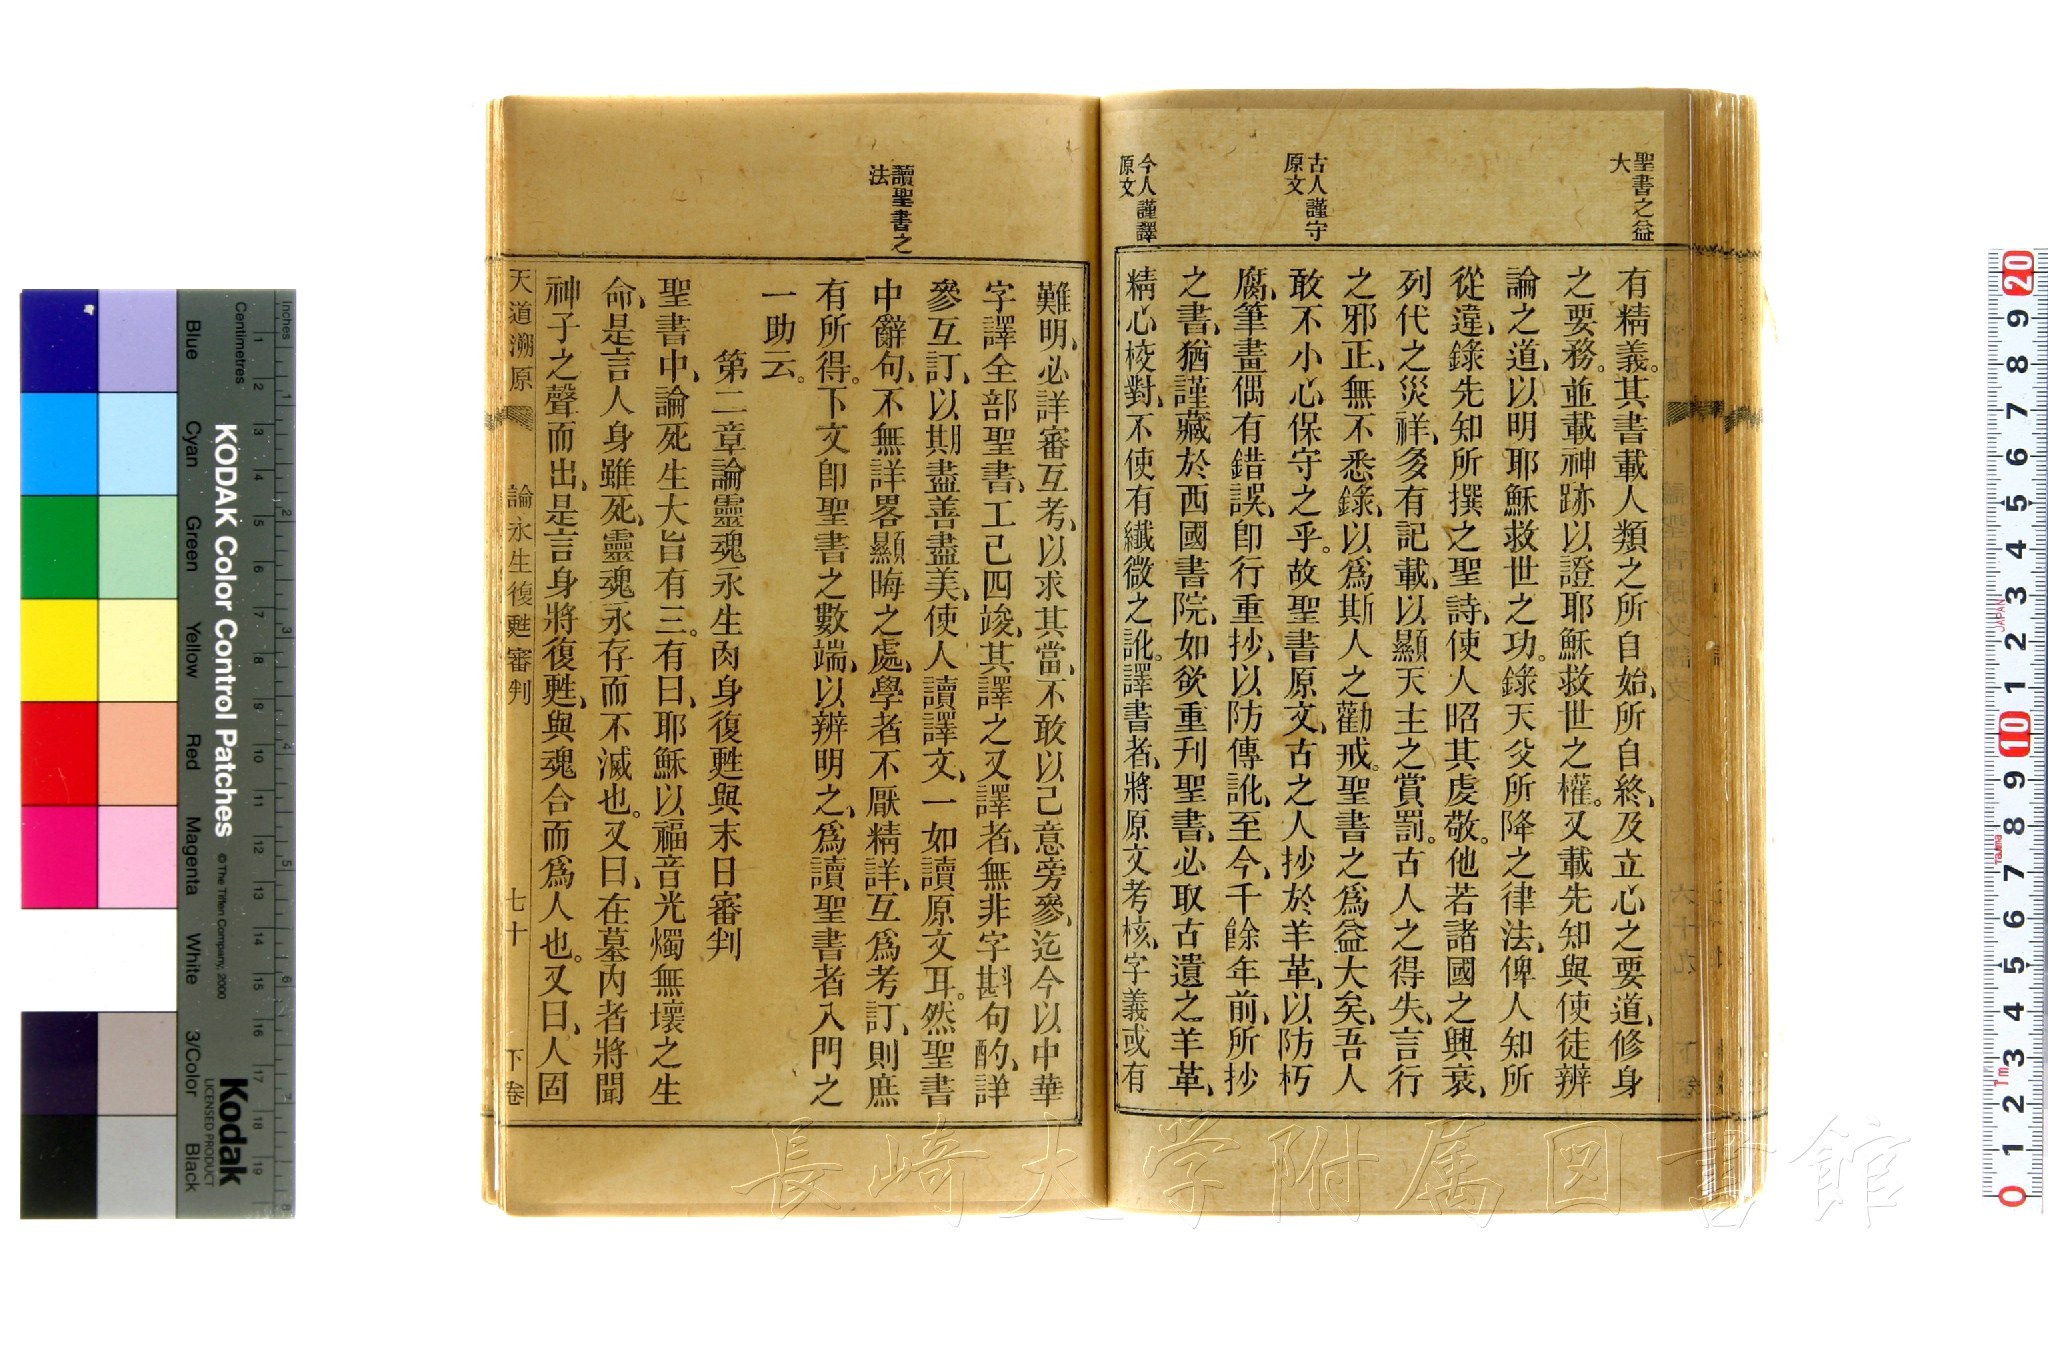 聖書之益
大
古人謹守
原文
今人謹譯
原文
有精義。其書載人類之所自始、所自終、及立心之要道、修身
之要務。並載神跡以證耶穌救世之權。又載先知與使徒辨
論之道、以明耶穌救世之功。錄天父所降之律法、俾人知所
從違、錄先知所撰之聖詩、使人昭其虔敬。他若諸國之興衰、
列代之災祥、多有記載、以顯天主之賞罰。古人之得失、言行
之邪正、無不悉錄、以爲斯人之勸戒。聖書之爲益大矣、吾人
敢不小心保守之乎。故聖書原文、古之人抄於羊革、以防朽
腐、筆畫偶有錯誤、即行重抄、以防傳訛、至今、千餘年前、所抄
之書、猶謹藏於西國書院、如欲重刊聖書、必取古遺之羊革、
精心校對、不使有纖微之訛。譯書者、將原文考核、字義或有
讀聖書之
法
難明、必詳審互考、以求其當、不敢以己意旁參、迄今以中華
字譯全部聖書、工已四竣、其譯之又譯者、無非字斟句酌、詳
參互訂、以期盡善盡美、使人讀譯文、一如讀原文耳。然聖書
中辭句、不無詳畧顯晦之處、學者不厭精詳、互爲考訂、則庶
有所得。下文即聖書之數端、以辨明之、爲讀聖書者入門之
一助云。
第二章論靈魂永生肉身復甦與末日審判
聖書中、論死生大旨有三。有曰、耶穌以福音光燭無壞之生
命、是言人身雖死、靈魂永存而不滅也。又曰、在墓內者將聞
神子之聲而出、是言身將復甦、與魂合而爲人也。又曰、人固
天道溯原 論永生復甦審判 七十 下卷
長崎大学附属図書館
KODAK Color Control Patches
©The Tiffen Company, 2000
Kodak
LICENSED PRODUCT
Blue
Cyan
Green
Yellow
Red
Magenta
White
3/Color
Black
Centimetres
Inches
1 2 3 4 5 6 7 8 9 10 11 12 13 14 15 16 17 18 19
1 2 3 4 5 6 7 8
20 9 8 7 6 5 4 3 2 1 10 9 8 7 6 5 4 3 2 1 0
JAPAN